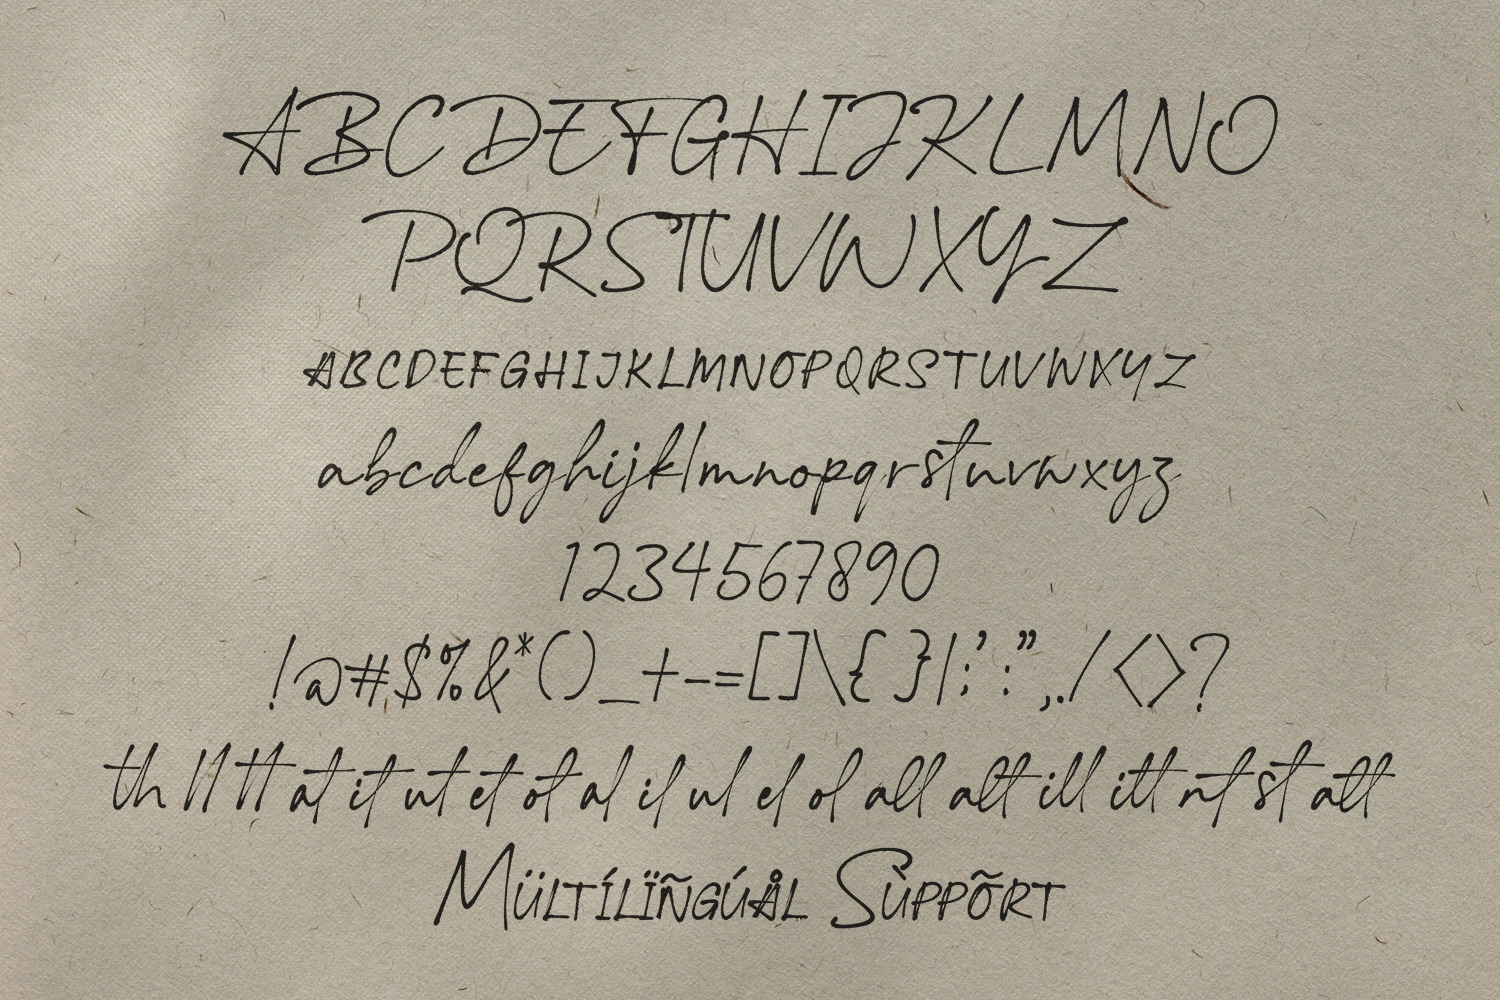 ABCDEFGHIJKLMNO
PQRSTUVWXYZ
ABCDEFGHIJKLMNOPQRSTUVWXYZ
abcdefghijklmnopqrstuvwxyz
1234567890
!@#$%&*()_+-=[]\{}|;':",./<>?
th ll tt at it ut et ot al il ul el ol all alt ill itt nt st att
MÜLTÍLÏÑGÚÅL SÙPPÕRT